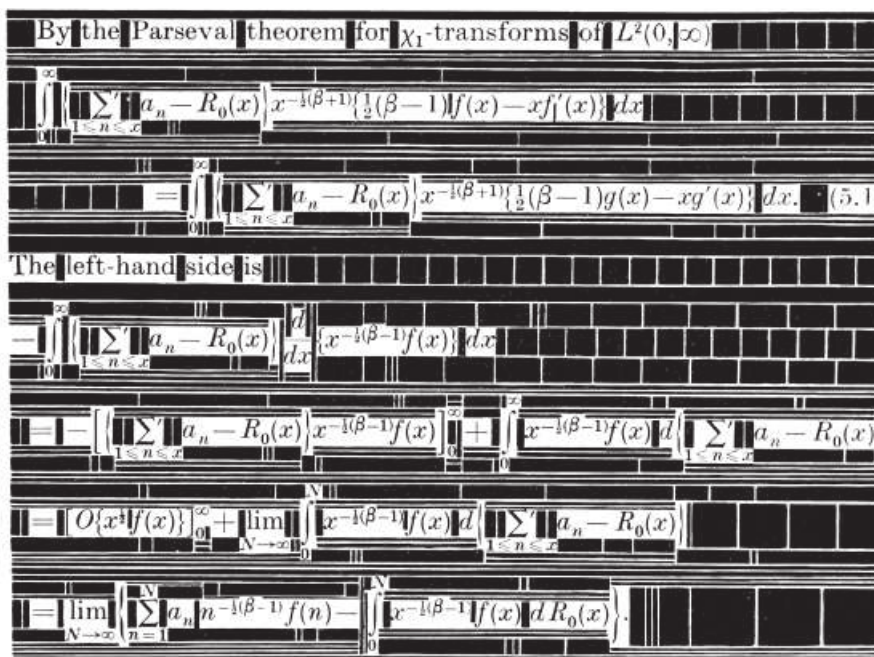 By the Parseval theorem for χ₁-transforms of L²(0, ∞)
∫₀^∞ { ∑′_{1≤n≤x} aₙ − R₀(x) } x^{−½(β+1)} {½(β−1) f(x) − xf′(x)} dx
= ∫₀^∞ { ∑′_{1≤n≤x} aₙ − R₀(x) } x^{−½(β+1)} {½(β−1)g(x) − xg′(x)} dx. (5.1
The left-hand side is
− ∫₀^∞ { ∑′_{1≤n≤x} aₙ − R₀(x) } d/dx {x^{−½(β−1)} f(x)} dx
= − [ { ∑′_{1≤n≤x} aₙ − R₀(x) } x^{−½(β−1)} f(x) ]₀^∞ + ∫₀^∞ x^{−½(β−1)} f(x) d { ∑′_{1≤n≤x} aₙ − R₀(x)
= [O{x^{½} f(x)}]₀^∞ + lim_{N→∞} ∫₀^N x^{−½(β−1)} f(x) d { ∑′_{1≤n≤x} aₙ − R₀(x) }
= lim_{N→∞} { ∑_{n=1}^N aₙ n^{−½(β−1)} f(n) − ∫₀^N x^{−½(β−1)} f(x) dR₀(x) }.